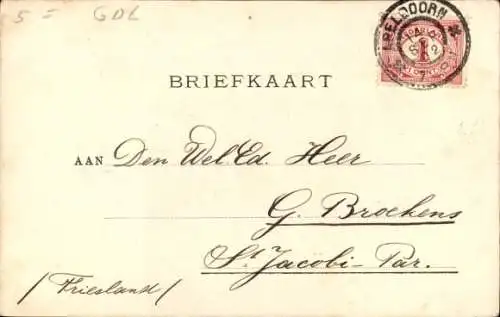 5 = GDL
APELDOORN
1
BRIEFKAART
AAN Den Wel.Ed. Heer
G. Brockens
St Jacobi-Par.
(Friesland)